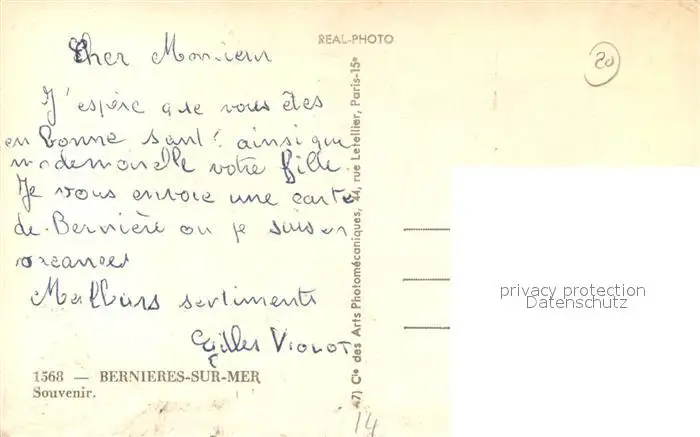 REAL-PHOTO
20
Cher Monsieur
J'espère que vous êtes
en bonne santé ainsi que
mademoiselle votre fille.
Je vous envoie une carte
de Bernière ou je suis en
vacances
Meilleurs sentiments
Gilles
1568 — BERNIERES-SUR-MER
Souvenir.
47) Cie des Arts Photomécaniques, 44, rue Letellier, Paris-15e
14
privacy protection
Datenschutz